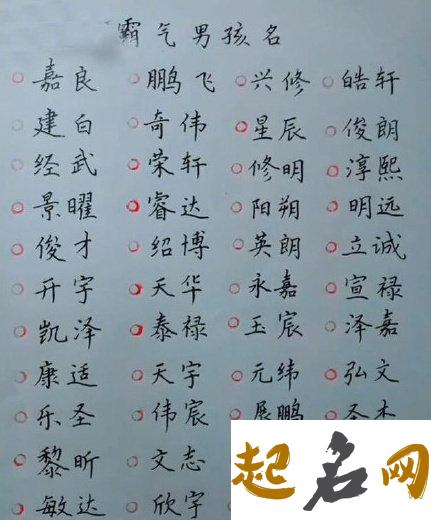 霸气男孩名
嘉良 鹏飞 兴修 皓轩
建白 奇伟 星辰 俊朗
经武 荣轩 修明 淳熙
景曜 睿达 阳朔 明远
俊才 绍博 英朗 立诚
开宇 天华 永嘉 宣禄
凯泽 泰禄 玉宸 泽嘉
康适 天宇 元纬 弘文
乐圣 伟宸 展鹏
黎昕 文志
敏达 欣宇
起名网